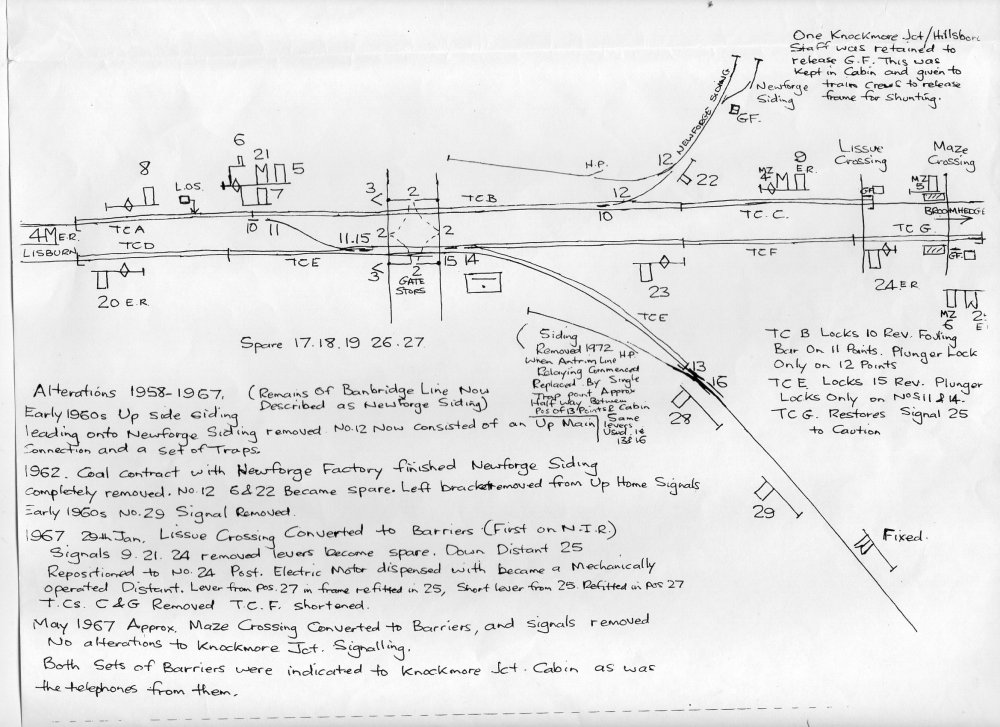 One Knockmore Jct/Hillsboro
Staff was retained to
release G.F. This was
kept in Cabin and given to
train crews to release
frame for shunting.
NEWFORGE SIDING
Newforge
Siding
GF.
6
21
8
M
5
7
L.O.S.
H.P.
12
22
12
MZ
4
M
9
E.R.
Lissue
Crossing
Maze
Crossing
MZ
5
GF
3
2
TCB
10
T.C.C.
BROOMHEDGE
4M E.R.
LISBURN
TCA
TCD
10
11
2
2
TCE
11.15
15
14
TCF
TC G.
GF.
3
2
GATE
STOPS
20 E.R.
23
TCE
24 ER
MZ
6
Spare 17.18.19 26.27
Siding
Removed 1972
When Antrim Line
Relaying Commenced
Replaced By Single
Trap point Approx
Half Way Between
Pos of 13 Points & Cabin
Same
levers
Used. ie
13 & 16
H.P.
13
16
28
29
Fixed.
TC B Locks 10 Rev. Fouling
Bar On 11 Points. Plunger Lock
Only on 12 Points
TC E Locks 15 Rev. Plunger
Locks Only on Nos 11 & 14.
TC G. Restores Signal 25
to Caution
Alterations 1958-1967. (Remains of Banbridge Line Now
Described as Newforge Siding)
Early 1960s Up side siding
leading onto Newforge Siding removed No.12 Now consisted of an Up Main
Connection and a set of Traps.
1962. Coal contract with Newforge Factory finished Newforge Siding
completely removed. No.12 6 & 22 Became spare. Left bracket removed from Up Home Signals
Early 1960s No.29 Signal Removed.
1967 29th Jan. Lissue Crossing Converted to Barriers (First on N.I.R.)
Signals 9. 21. 24 removed levers become spare. Down Distant 25
Repositioned to No.24 Post. Electric Motor dispensed with became a Mechanically
operated Distant. Lever from Pos.27 in frame refitted in 25, Short lever from 25 Refitted in pos 27
T.Cs. C & G Removed T.C.F. shortened.
May 1967 Approx. Maze Crossing Converted to Barriers, and signals removed
No alterations to Knockmore Jct. Signalling.
Both Sets of Barriers were indicated to Knockmore Jct. Cabin as was
the telephones from them.